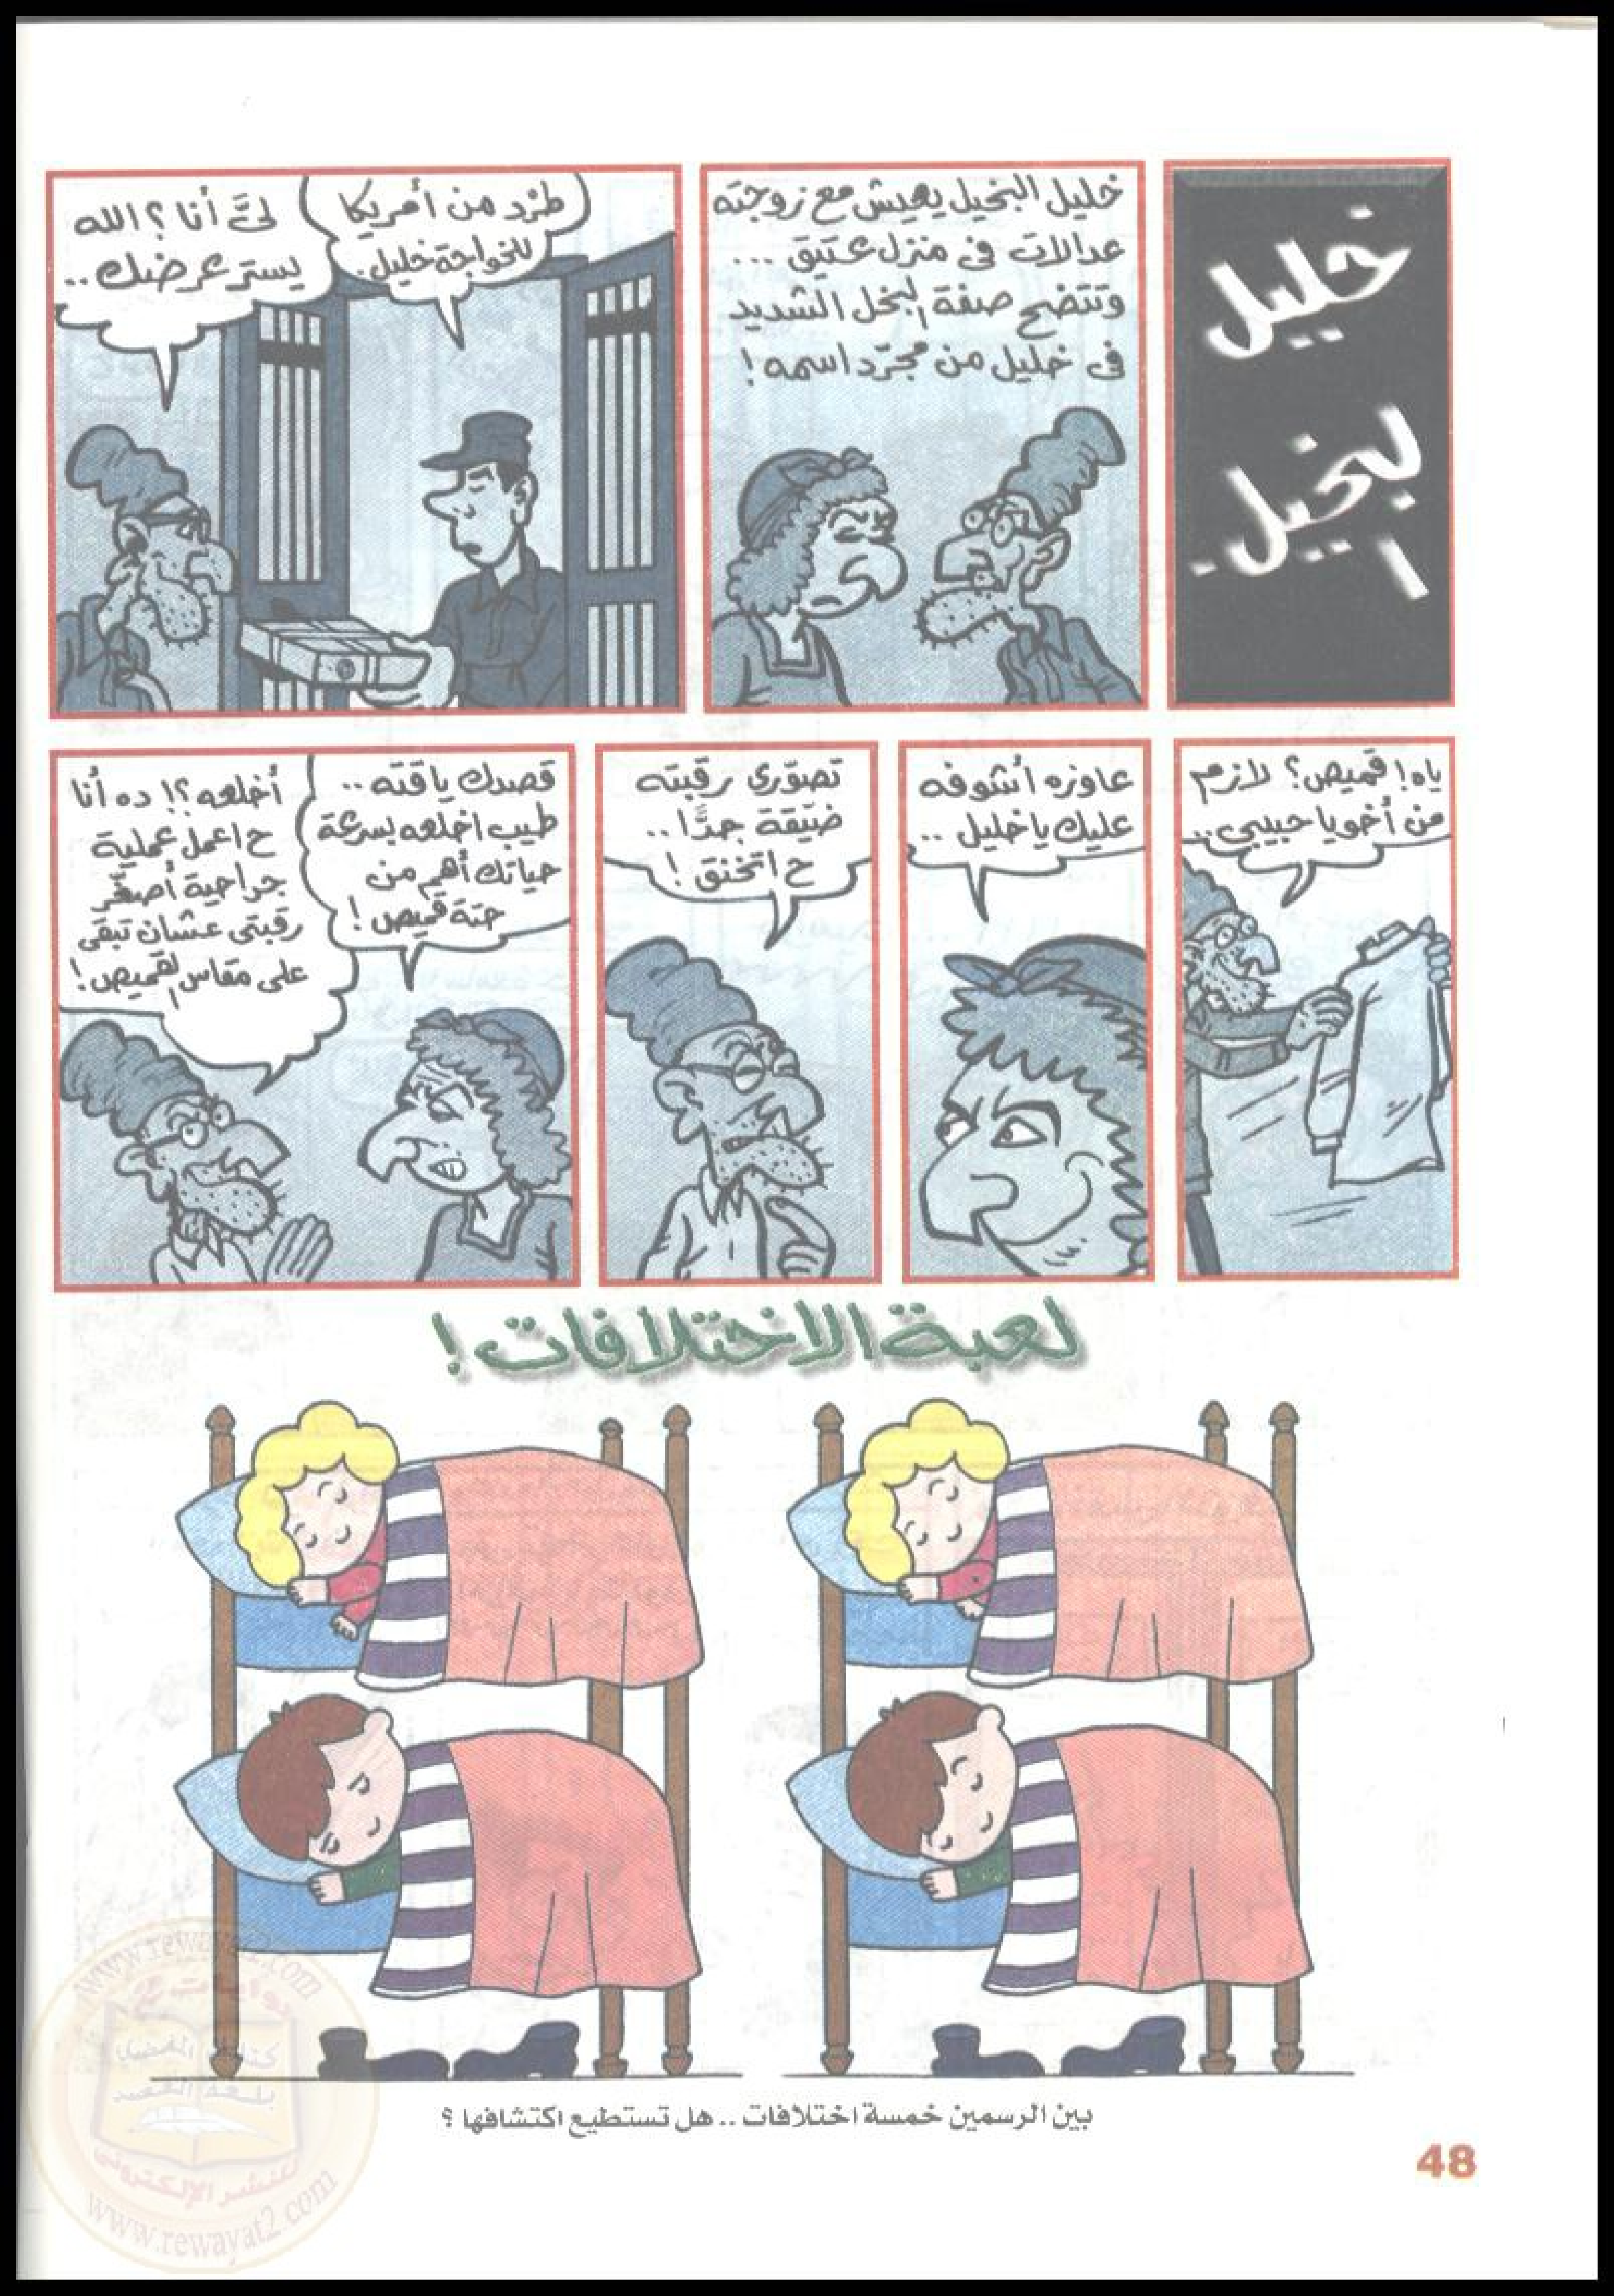 خليل
البخيل
خليل البخيل يعيش مع زوجته
عدالات فى منزل عتيق ...
وتتضح صفة البخل الشديد
فى خليل من مجرّد اسمه !
طرْد من أمريكا
للخواجة خليل.
لىَّ أنا ؟ الله
يستر عرضك ..
ياه ! قميص ؟ لازم
من أخويا حبيبى ..
عاوزه أشوفه
عليك يا خليل ..
تصوّرى رقبته
ضيّقة جدًّا ..
ح اتخنق !
قصدك ياقته ..
طيب اخلعه بسرعة
حياتك أهم من
حتة قميص !
أخلعه ؟! ده أنا
ح اعمل عملية
جراحية أصغّر
رقبتى عشان تبقى
على مقاس القميص !
لعبة الاختلافات !
بين الرسمين خمسة اختلافات .. هل تستطيع اكتشافها ؟
48
www.rewayat2.com
للنشر الإلكترونى
www.rewayat2.com